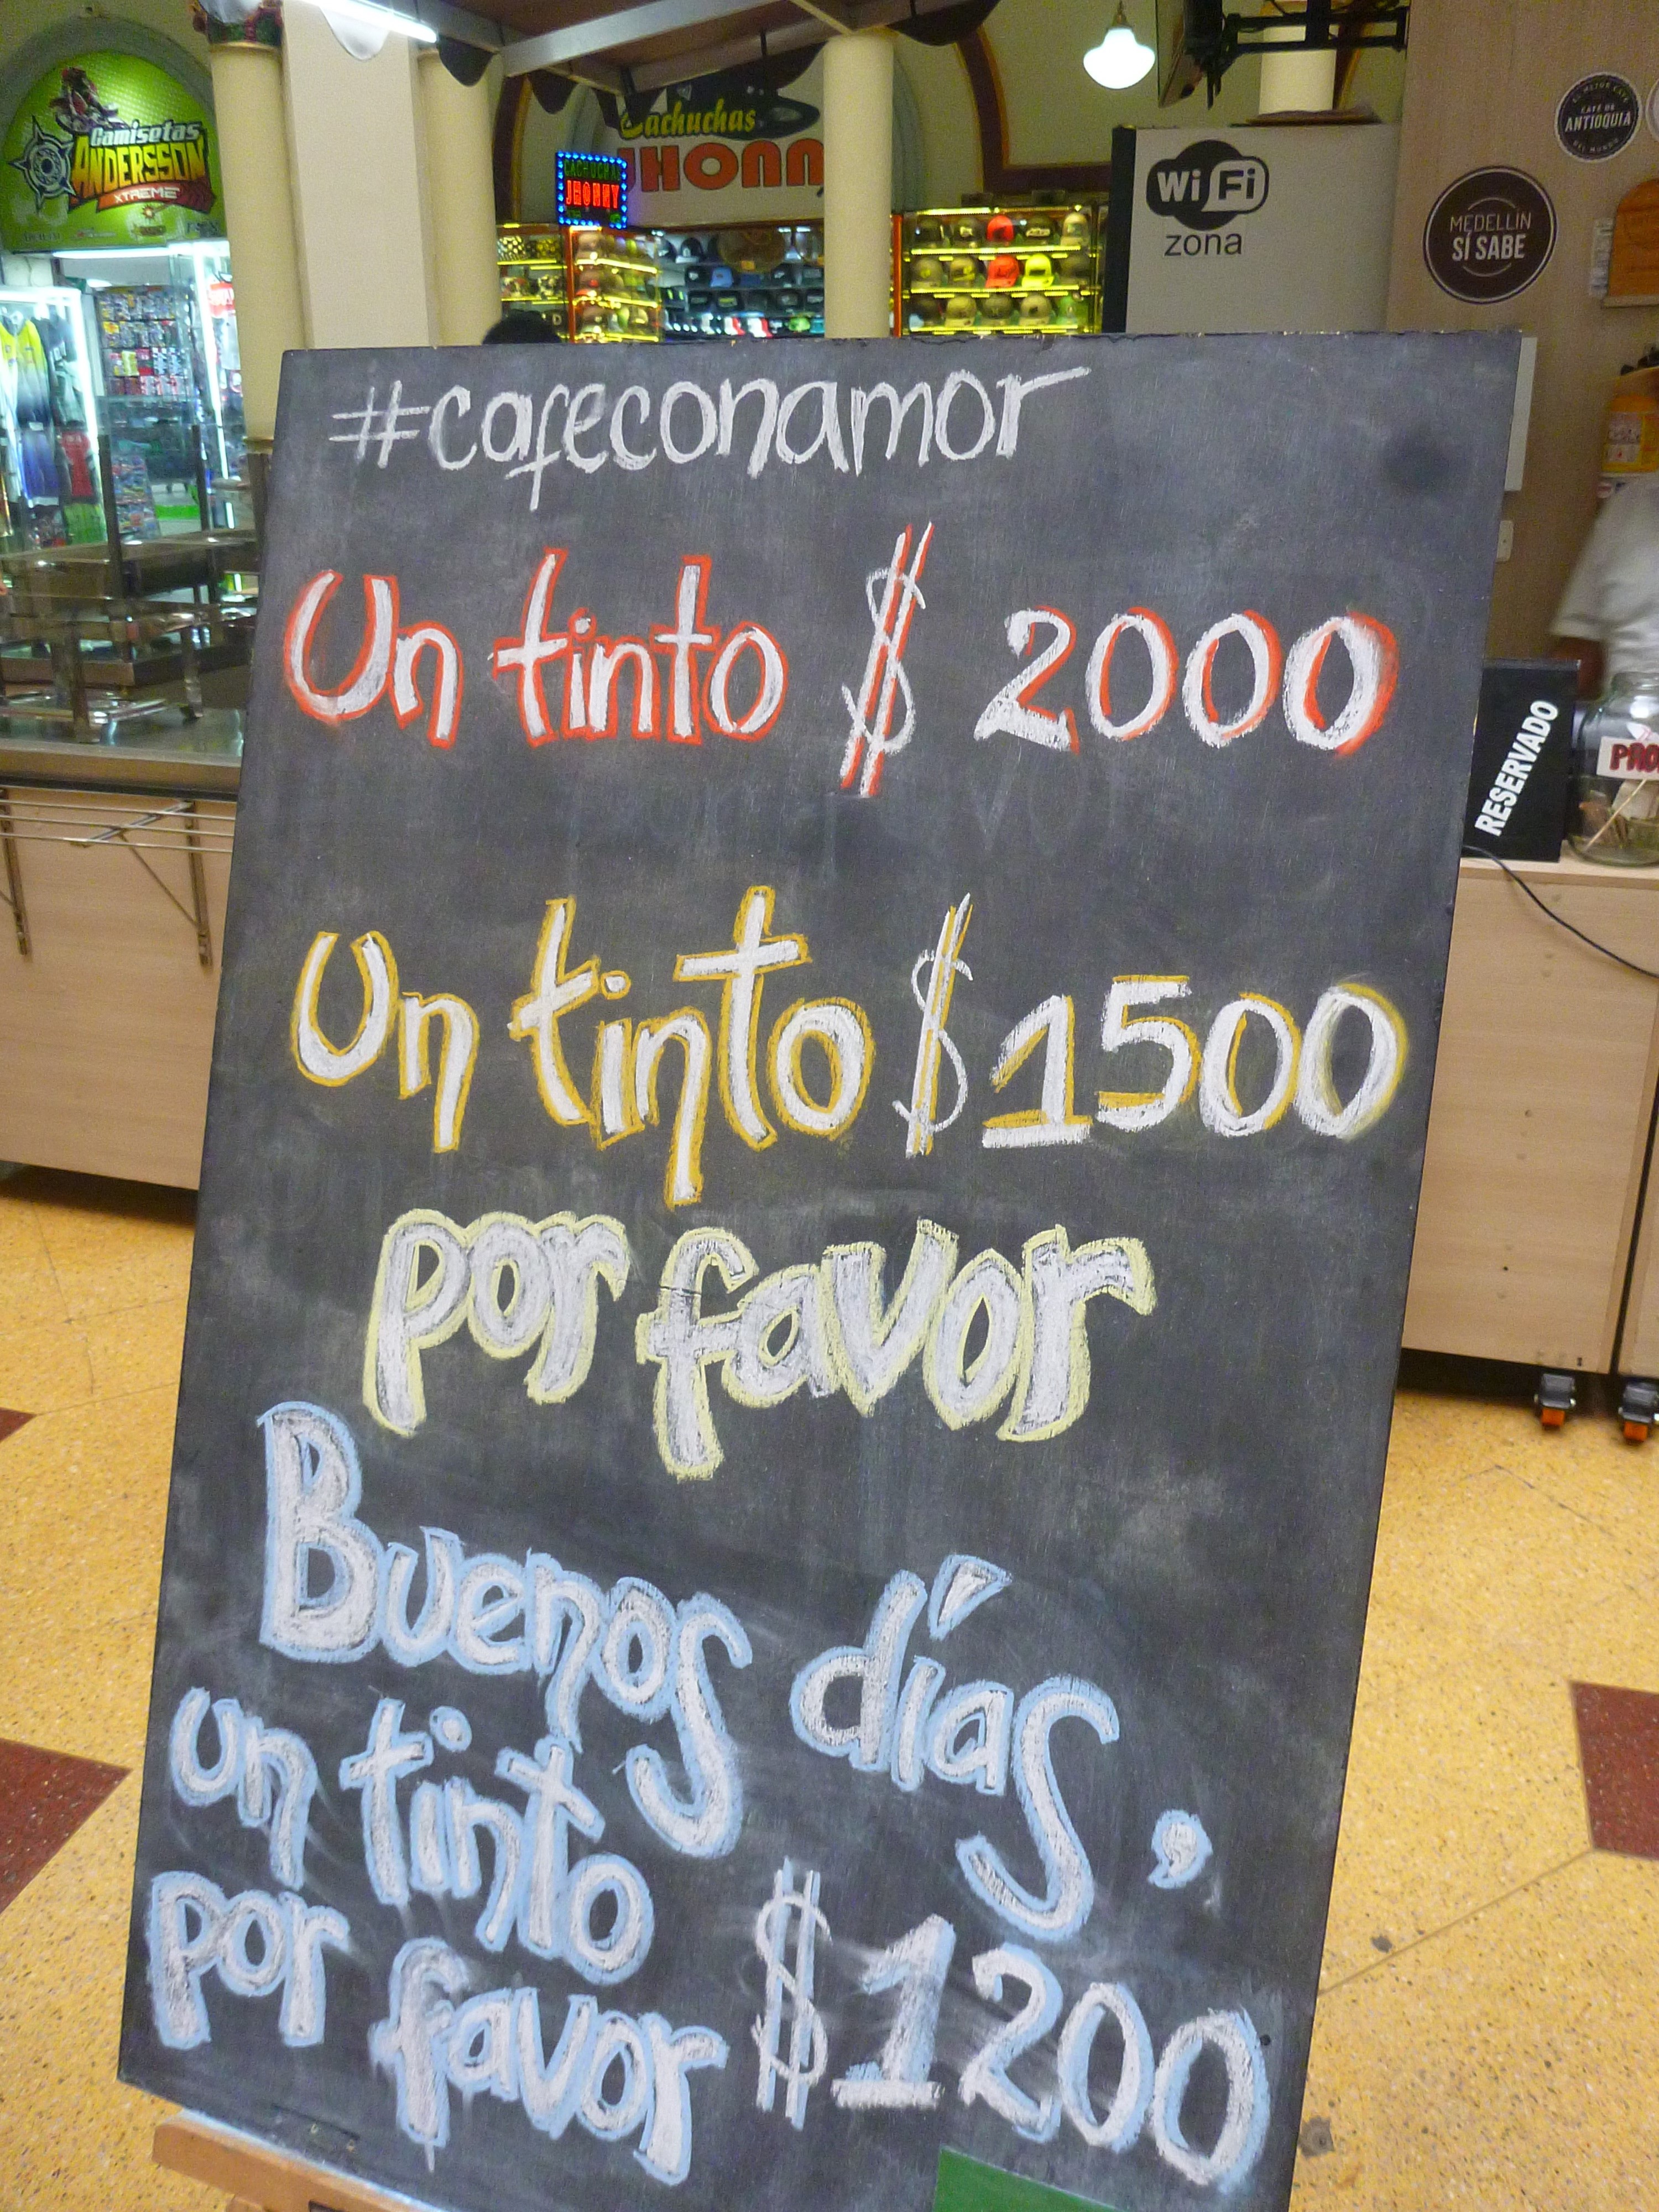 Camisetas
ANDERSSON
XTREME
Cachuchas
JHONN
CACHUCHAS
JHONNY
Wi Fi
zona
CAFÉ DE
ANTIOQUIA
DEL MUNDO
MEDELLÍN
SÍ SABE
#cafeconamor
Un tinto $ 2000
RESERVADO
PRO
Un tinto $ 1500
por favor
Buenos días,
un tinto
por favor $ 1200